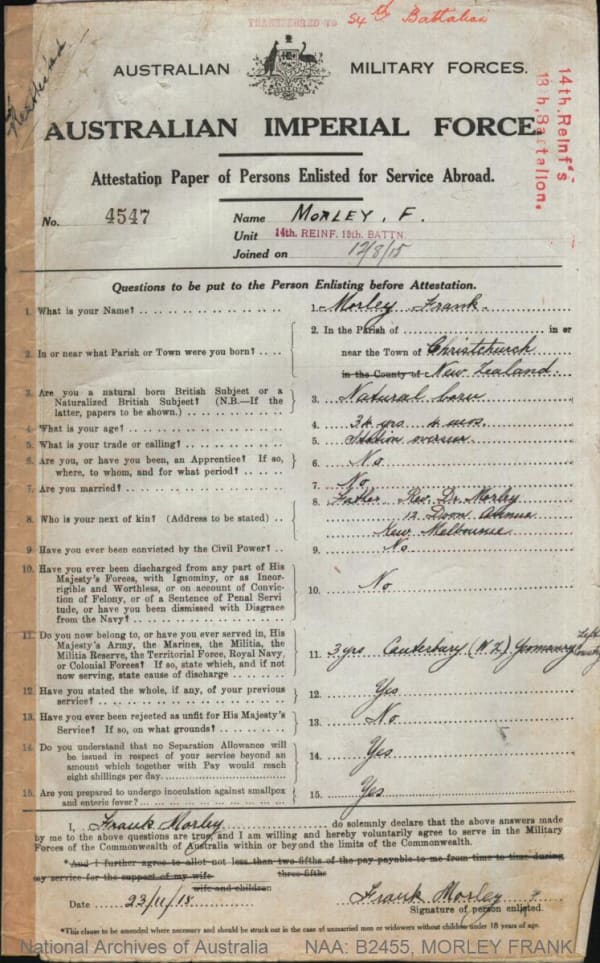 TRANSFERRED TO 54th Battalion
AUSTRALIAN MILITARY FORCES.
AUSTRALIAN IMPERIAL FORCE.
14th. Reinf's
13th. Battalion.
Attestation Paper of Persons Enlisted for Service Abroad.
No. 4547 Name MORLEY, F.
Unit 14th. REINF. 13th. BATTN
Joined on 12/8/15
Questions to be put to the Person Enlisting before Attestation.
1. What is your Name? 1. Morley Frank.
2. In or near what Parish or Town were you born? 2. In the Parish of in or
near the Town of Christchurch
in the County of New Zealand
3. Are you a natural born British Subject or a
Naturalized British Subject? (N.B.—If the
latter, papers to be shown.) 3. Natural born
4. What is your age? 4. 34 yrs 4 mos.
5. What is your trade or calling? 5. Station
6. Are you, or have you been, an Apprentice? If so,
where, to whom, and for what period? 6. No
7. Are you married? 7. No
8. Who is your next of kin? (Address to be stated) 8. Father Rev. Dr. Morley
12 Avenue
Kew Melbourne
9. Have you ever been convicted by the Civil Power? 9. No
10. Have you ever been discharged from any part of His
Majesty's Forces, with Ignominy, or as Incor-
rigible and Worthless, or on account of Convic-
tion of Felony, or of a Sentence of Penal Servi
tude, or have you been Dismissed with Disgrace
from the Navy? 10. No
11. Do you now belong to, or have you ever served in, His
Majesty's Army, the Marines, the Militia, the
Militia Reserve, the Territorial Force, Royal Navy,
or Colonial Forces? If so, state which, and if not
now serving, state cause of discharge 11. 3 yrs Canterbury (N.Z.) Yeomanry Left Country
12. Have you stated the whole, if any, of your previous
service? 12. Yes
13. Have you ever been rejected as unfit for His Majesty's
Service? If so, on what grounds? 13. No
14. Do you understand that no Separation Allowance will
be issued in respect of your service beyond an
amount which together with Pay would reach
eight shillings per day. 14. Yes
15. Are you prepared to undergo inoculation against smallpox
and enteric fever? 15. Yes
I, Frank Morley do solemnly declare that the above answers made
by me to the above questions are true, and I am willing and hereby voluntarily agree to serve in the Military
Forces of the Commonwealth of Australia within or beyond the limits of the Commonwealth.
*And I further agree to allot not less than two-fifths of the pay payable to me from time to time during
three-fifths
my service for the support of my wife
wife and children
Date 23/11/15 Frank Morley
Signature of person enlisted.
*This clause to be amended where necessary and should be struck out in the case of unmarried men or widowers without children under 18 years of age.
National Archives of Australia NAA: B2455, MORLEY FRANK